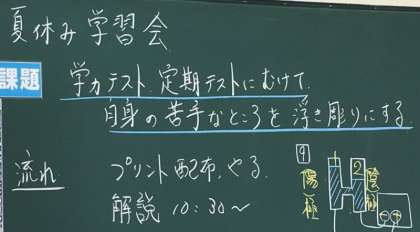 夏休み学習会
課題
学力テスト、定期テストにむけて、
自身の苦手なところを浮き彫りにする
流れ
プリント配布、やる。
解説 10:30〜
9
陽極
2
陰極
⊖⊕